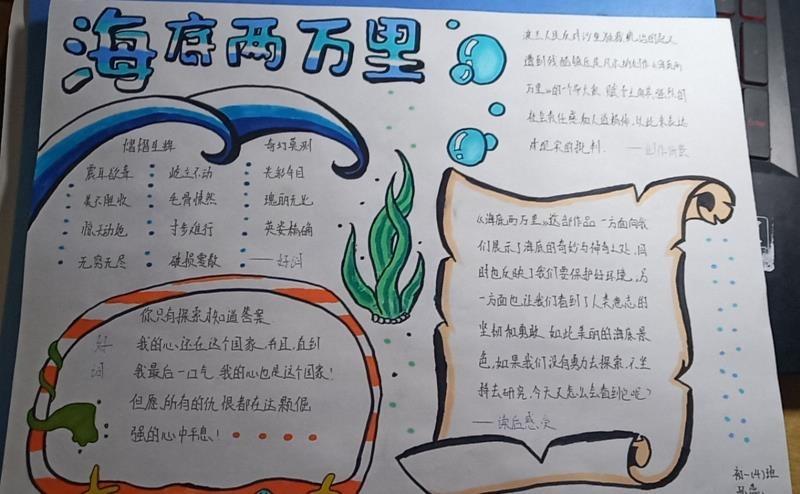 海底两万里
波兰人民反对沙皇独裁统治的起义
遭到残酷镇压是凡尔纳创作《海底两
万里》的一个布大教 赋予主角英强烈的
社会责任感和人道精神,以此来表达
对现实的批判. ——创作背景
熠熠生辉 奇幻莫测
震耳欲聋 屹立不动 光彩夺目
美不胜收 毛骨悚然 瑰丽无比
惊天动地 寸步难行 英姿
无穷无尽 破损零散 ——好词
《海底两万里》这部作品 一方面向我
们展示了海底的奇妙与神奇之处,同
时也反映了我们要保护好环境,另
一方面也让我们看到了人类意志的
坚韧和勇敢.如此美丽的海底景
色,如果我们没有勇力去探索,不坚
持去研究,今天又怎么会看到它呢?
——读后感受
你只有探索才知道答案
好词
我的心还在这个国家,并且,直到
我最后一口气,我的心也是这个国家!
但愿所有的仇恨都在这颗倔
强的心中平息!
初一(4)班